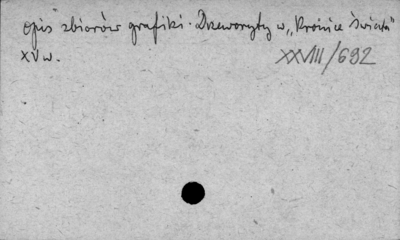 opis zbiorów grafiki. Drzeworyty w „Kronice Świata”
XV w.
XXVIII/692